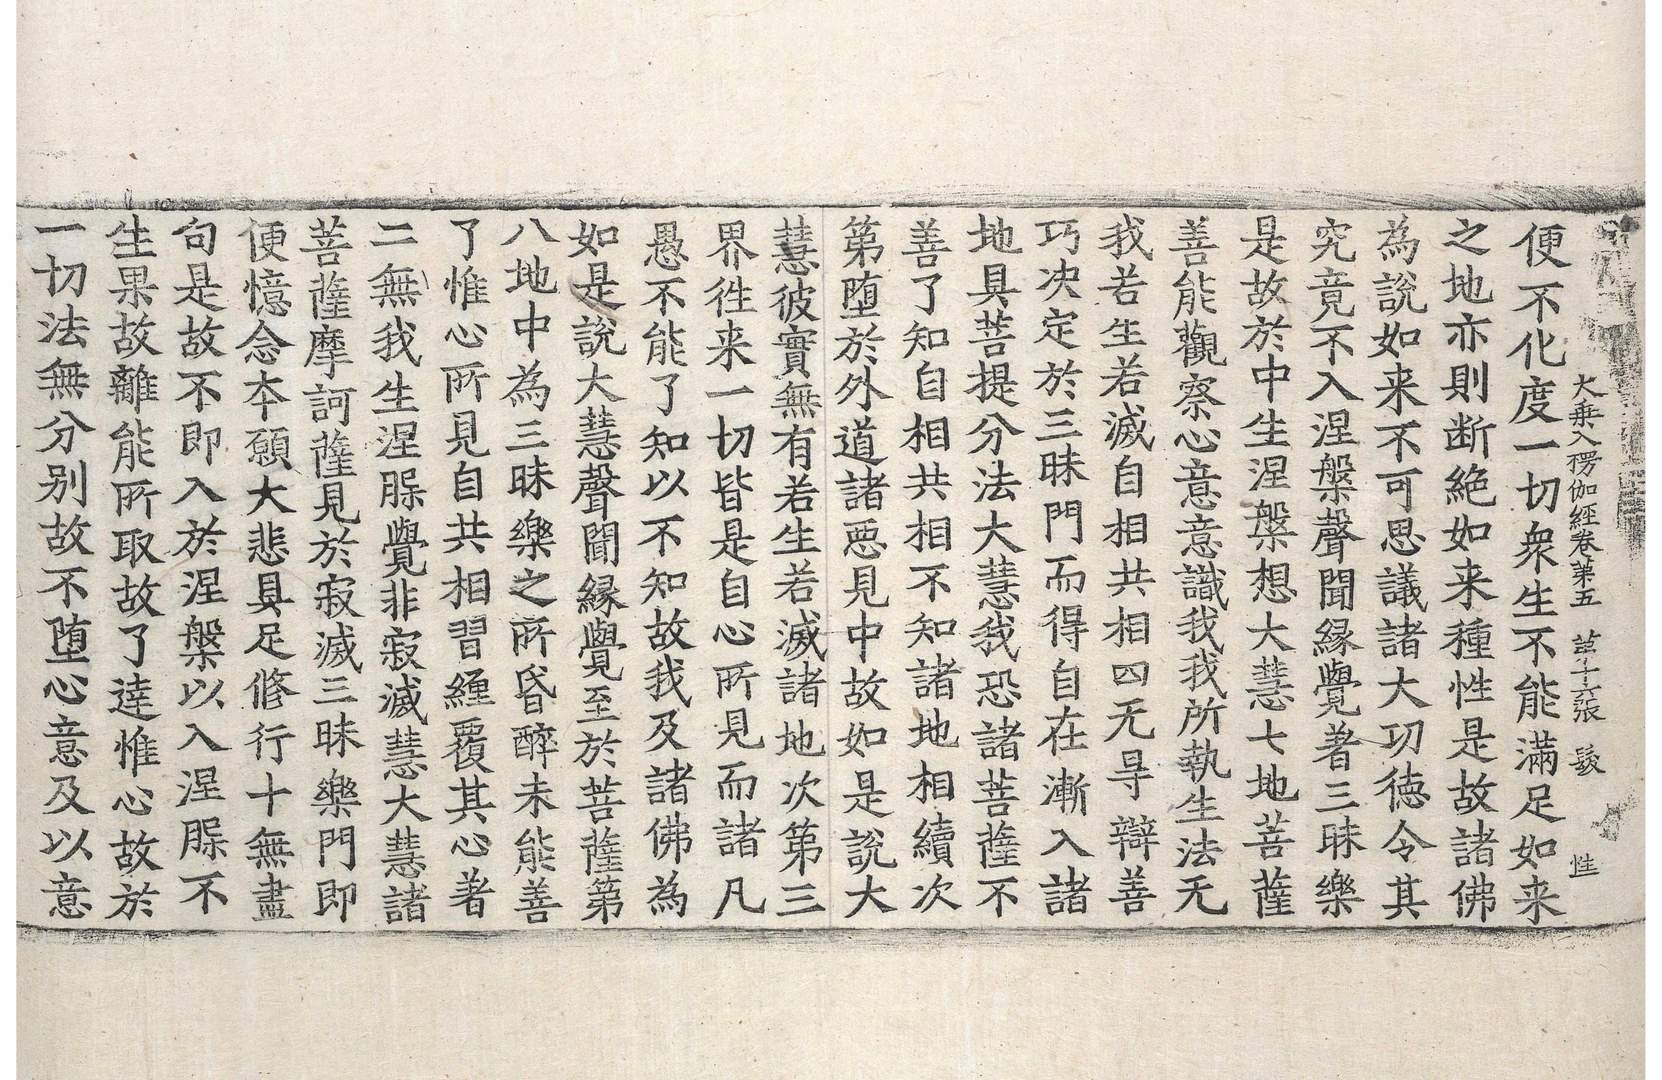 大乗入楞伽經卷第五 第十六張 髮
便不化度一切衆生不能滿足如来
之地亦則断絶如来種性是故諸佛
為說如来不可思議諸大功徳令其
究竟不入涅槃聲聞縁覺著三昧樂
是故於中生涅槃想大慧七地菩薩
善能觀察心意意識我我所執生法无
我若生若滅自相共相四无㝵辯善
巧决定於三昧門而得自在漸入諸
地具菩提分法大慧我恐諸菩薩不
善了知自相共相不知諸地相續次
第堕於外道諸惡見中故如是說大
慧彼實無有若生若滅諸地次第三
界徃来一切皆是自心所見而諸凡
愚不能了知以不知故我及諸佛為
如是說大慧聲聞縁覺至於菩薩第
八地中為三昧樂之所昏醉未能善
了惟心所見自共相習纒覆其心著
二無我生涅槃覺非寂滅慧大慧諸
菩薩摩訶薩見於寂滅三昧樂門即
便憶念本願大悲具足修行十無盡
句是故不即入於涅槃以入涅槃不
生果故離能所取故了達惟心故於
一切法無分别故不堕心意及以意